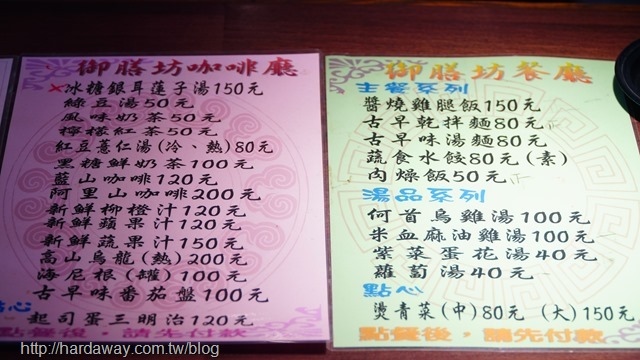 御膳坊咖啡廳
×冰糖銀耳蓮子湯150元
綠豆湯50元
風味奶茶50元
檸檬紅茶50元
紅豆薏仁湯(冷、熱)80元
黑糖鮮奶茶100元
藍山咖啡120元
阿里山咖啡200元
新鮮柳橙汁120元
新鮮蘋果汁120元
新鮮蔬果汁150元
高山烏龍(熱)200元
海尼根(罐)100元
古早味番茄盤100元
點心
起司蛋三明治120元
點餐後，請先付款
御膳坊餐廳
主餐系列
醬燒雞腿飯150元
古早乾拌麵80元
古早味湯麵80元
蔬食水餃80元(素)
肉燥飯50元
湯品系列
何首烏雞湯100元
米血麻油雞湯100元
紫菜蛋花湯40元
蘿蔔湯40元
點心
燙青菜(中)80元 (大)150元
點餐後，請先付款
http://hardaway.com.tw/blog